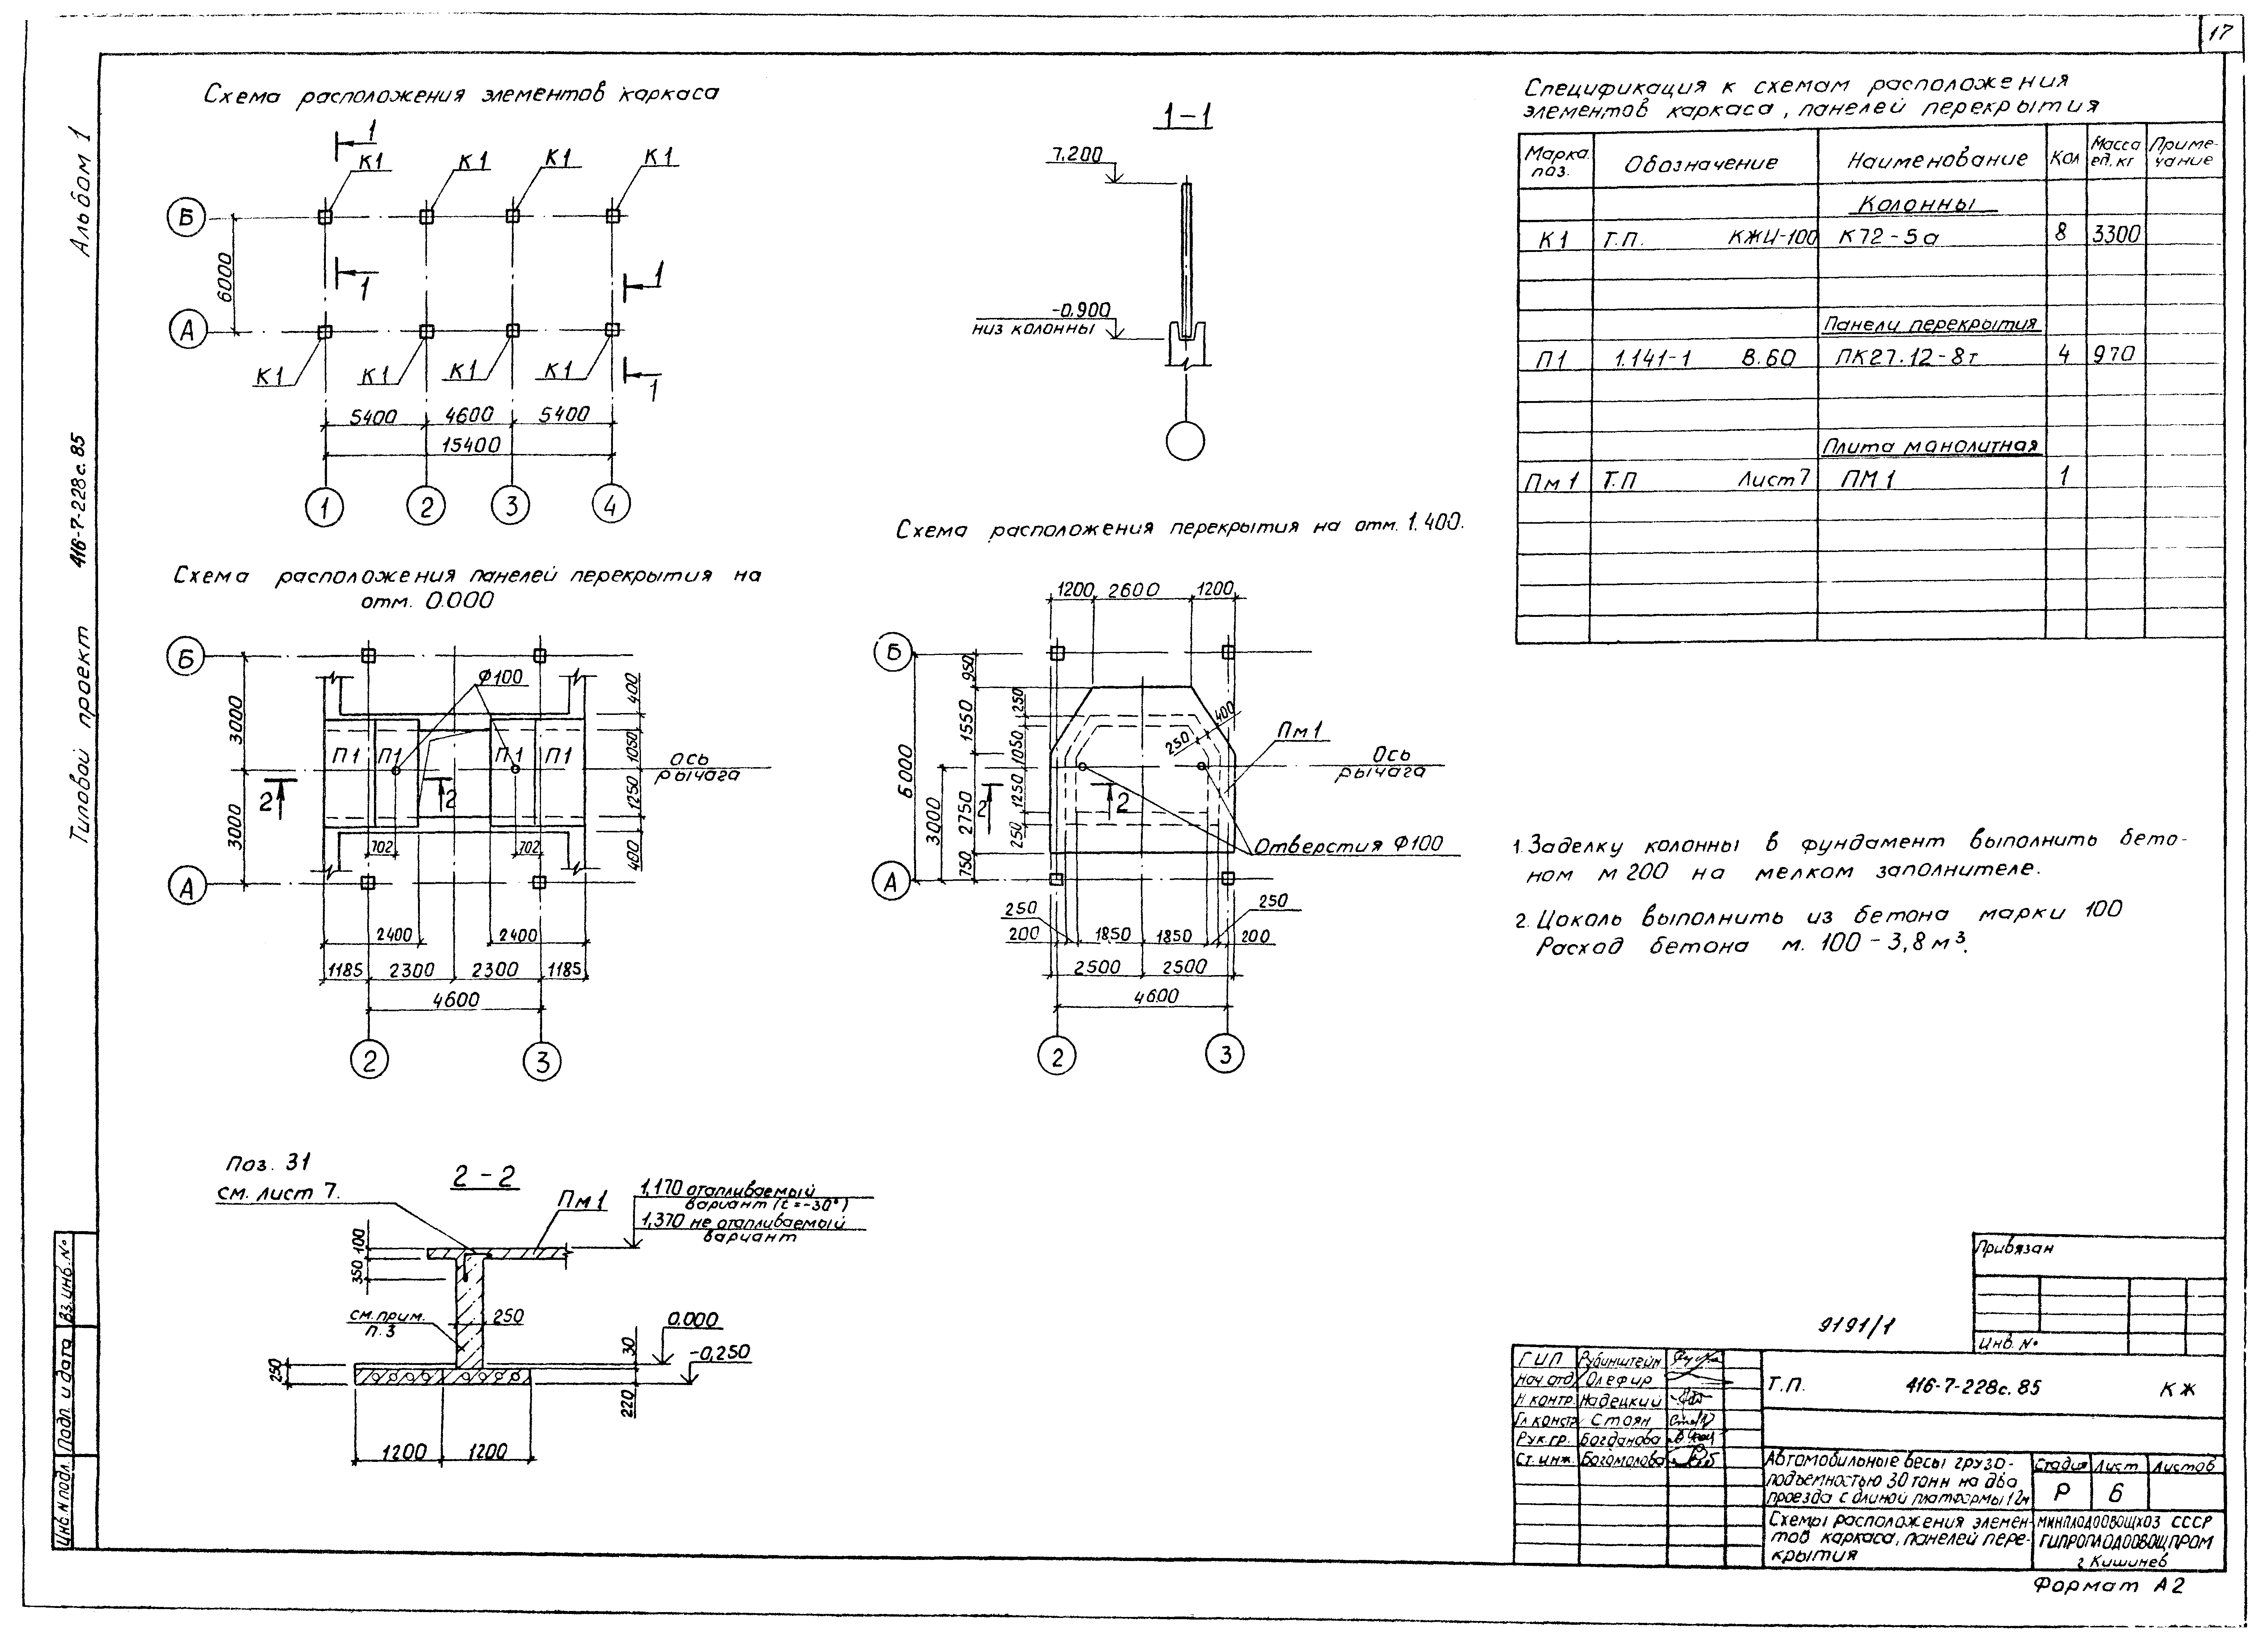 17
Альбом 1
Типовой проект 416-7-228с.85
Схема расположения элементов каркаса
1
К1
К1
К1
К1
Б
6000
1
1
А
К1
К1
К1
К1
1
5400
4600
5400
15400
1
2
3
4
1-1
7.200
-0.900
низ колонны
Спецификация к схемам расположения
элементов каркаса, панелей перекрытия
Марка поз.
Обозначение
Наименование
Кол
Масса ед, кг
Приме-чание
Колонны
К1 Т.П. КЖИ-100 К72-5а 8 3300
Панели перекрытия
П1 1.141-1 В.60 ПК27.12-8т 4 970
Плита манолитная
Пм1 Т.П Лист7 ПМ1 1
Схема расположения панелей перекрытия на
отм. 0.000
Б
Ф100
3000
3000
400
1050
1250
400
П1
П1
П1
П1
ось
рычага
2
2
702
702
А
2400
2400
1185
2300
2300
1185
4600
2
3
Схема расположения перекрытия на отм. 1.400.
1200
2600
1200
Б
950
1550
2750
750
6000
3000
250
1050
1250
250
400
250
Пм1
Ось
рычага
2
2
Отверстия Ф100
А
250
250
200
1850
1850
200
2500
2500
4600
2
3
1. Заделку колонны в фундамент выполнить бето-
ном м200 на мелком заполнителе.
2. Цоколь выполнить из бетона марки 100
Расход бетона м. 100-3,8м³.
Поз. 31
см. лист 7.
2-2
Пм1
1,170 отапливаемый
вариант (t=-30°)
1,370 не отапливаемый
вариант
100
350
см. прим.
п.3
250
0.000
-0,250
30
220
250
1200
1200
Привязан
Инв. №
9191/1
ГИП Рубинштейн
Нач отд Олефир
Н контр. Надецкий
Гл констр Стоян
Рук.гр. Богданова
Ст. инж. Богомолова
Т.П. 416-7-228с.85 КЖ
Автомобильные весы грузо-
подъемностью 30 тонн на два
проезда с длиной платформы 12м
Стадия Лист Листов
Р 6
Схемы расположения элемен-
тов каркаса, панелей пере-
крытия
МИНПЛОДООВОЩХОЗ СССР
ГИПРОПЛОДООВОЩПРОМ
г Кишинев
Формат А2
Инв. N подл.
Подп. и дата
Вз. инв. №